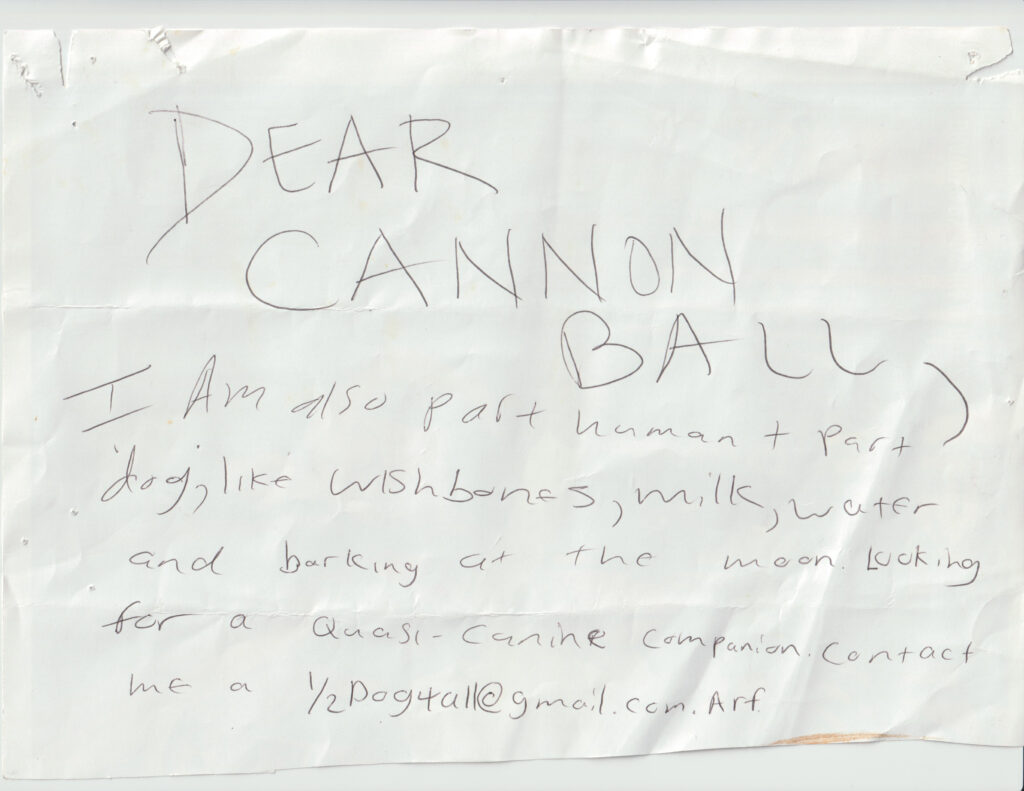 DEAR
CANNON
BALL,
I Am also part human + part
dog, like wishbones, milk, water
and barking at the moon. Looking
for a Quasi-canine companion. Contact
me a 1/2Dog4all@gmail.com. Arf